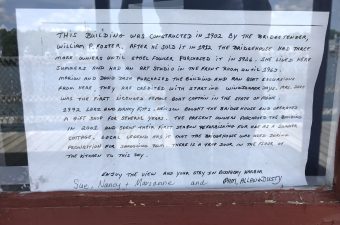 THIS BUILDING WAS CONSTRUCTED IN 1902 BY THE BRIDGETENDER,
WILLIAM P. FOSTER, AFTER HE SOLD IT IN 1912 THE BRIDGEHOUSE HAD THREE
MORE OWNERS UNTIL ETHEL FOWLER PURCHASED IT IN 1926. SHE LIVED HERE
SUMMERS AND HAD AN ART STUDIO IN THE FRONT ROOM UNTIL 1963.
MARION AND DAVID DASH PURCHASED THE BUILDING AND RAN BOAT EXCURSIONS
FROM HERE. THEY ARE CREDITED WITH STARTING WINDJAMMER DAYS. MRS. DASH
WAS THE FIRST LICENSED FEMALE BOAT CAPTAIN IN THE STATE OF MAINE.
1992 LUKE AND BOUGHT THE BRIDGEHOUSE AND OPERATED
A GIFT SHOP FOR SEVERAL YEARS. THE PRESENT OWNERS PURCHASED THE BUILDING
IN 2002 AND SPENT THEIR FIRST SEASON REFURBISHING FOR USE AS A SUMMER
COTTAGE. LOCAL LEGEND HAS IT THAT THE BRIDGEHOUSE WAS USED DURING
PROHIBITION FOR SMUGGLING RUM. THERE IS A TRAP DOOR IN THE FLOOR OF
THE KITCHEN TO THIS DAY.
ENJOY THE VIEW AND YOUR STAY IN BOOTHBAY HARBOR
Sue, Nancy + Marianne and